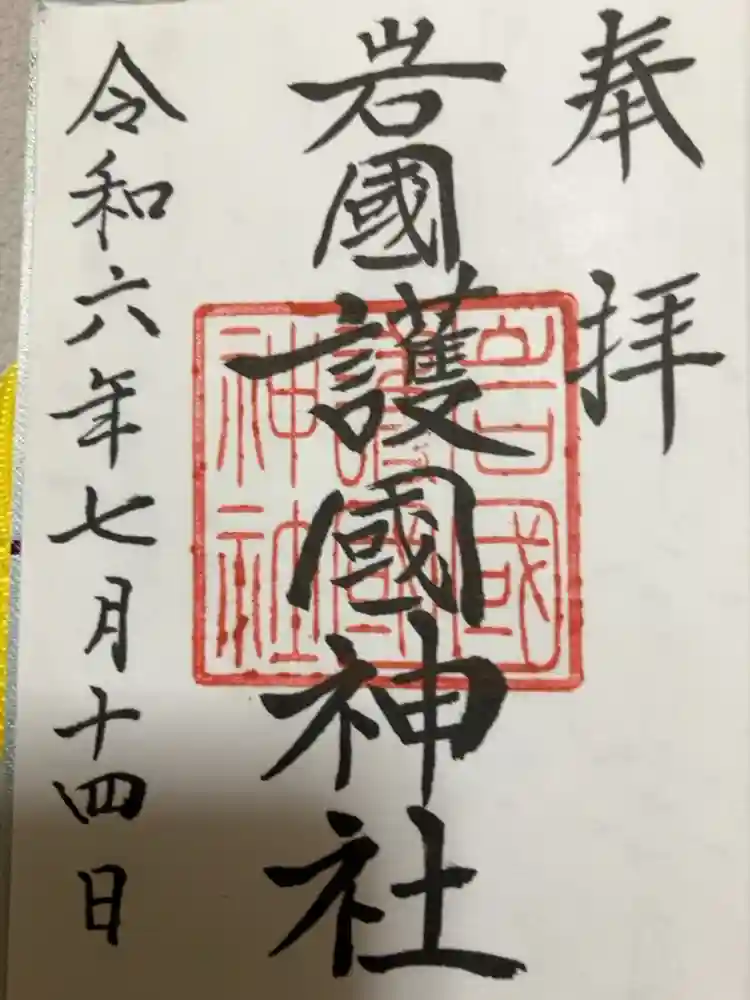 奉拝
岩國護國神社
岩國
護國
神社
令和六年七月十四日